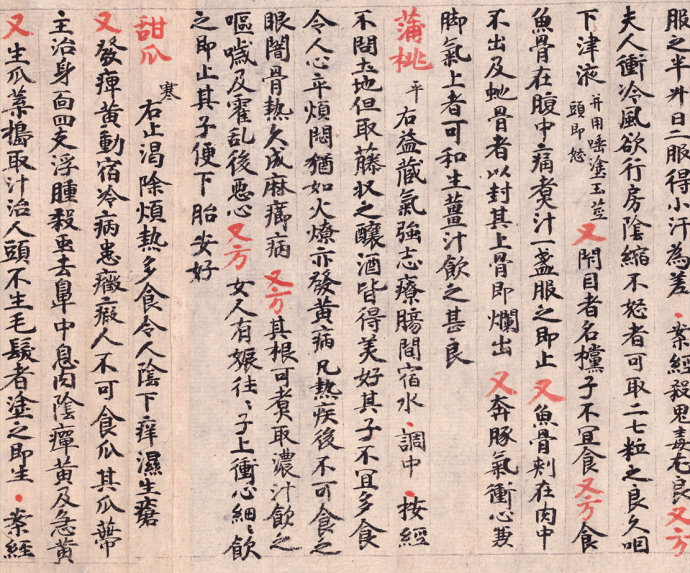 服之半升日二服得小汗為差·案經殺鬼毒尤良又方
夫人衝冷風欲行房陰縮不怒者可取二七粒之良久咽
下津液并用唾塗玉莖頭即怒又閉目者名欓子不宜食又方食
魚骨在腹中痛煮汁一盞服之即止又魚骨刺在肉中
不出及虵骨者以封其上骨即爛出又奔豚氣衝心兼
脚氣上者可和生薑汁飲之甚良
蒲桃平右益蔵氣強志療腸間宿水·調中·按經
不問土地但取藤收之釀酒皆得美好其子不宜多食
令人心卒煩悶猶如火燎亦發黃病凡熱疾後不可食之
眼闇骨熱久成麻癤病又方其根可煮取濃汁飲之
嘔噦及霍亂後惡心又方女人有娠往〻子上衝心細〻飲
之即止其子便下胎安好
甜瓜寒右止渴除煩熱多食令人陰下痒濕生瘡
又發痺黃動宿冷病患癥瘕人不可食瓜其瓜蔕
主治身面四支浮腫殺虫去鼻中息肉陰癉黃及急黃
又生瓜葉搗取汁治人頭不生毛髮者塗之即生·案經